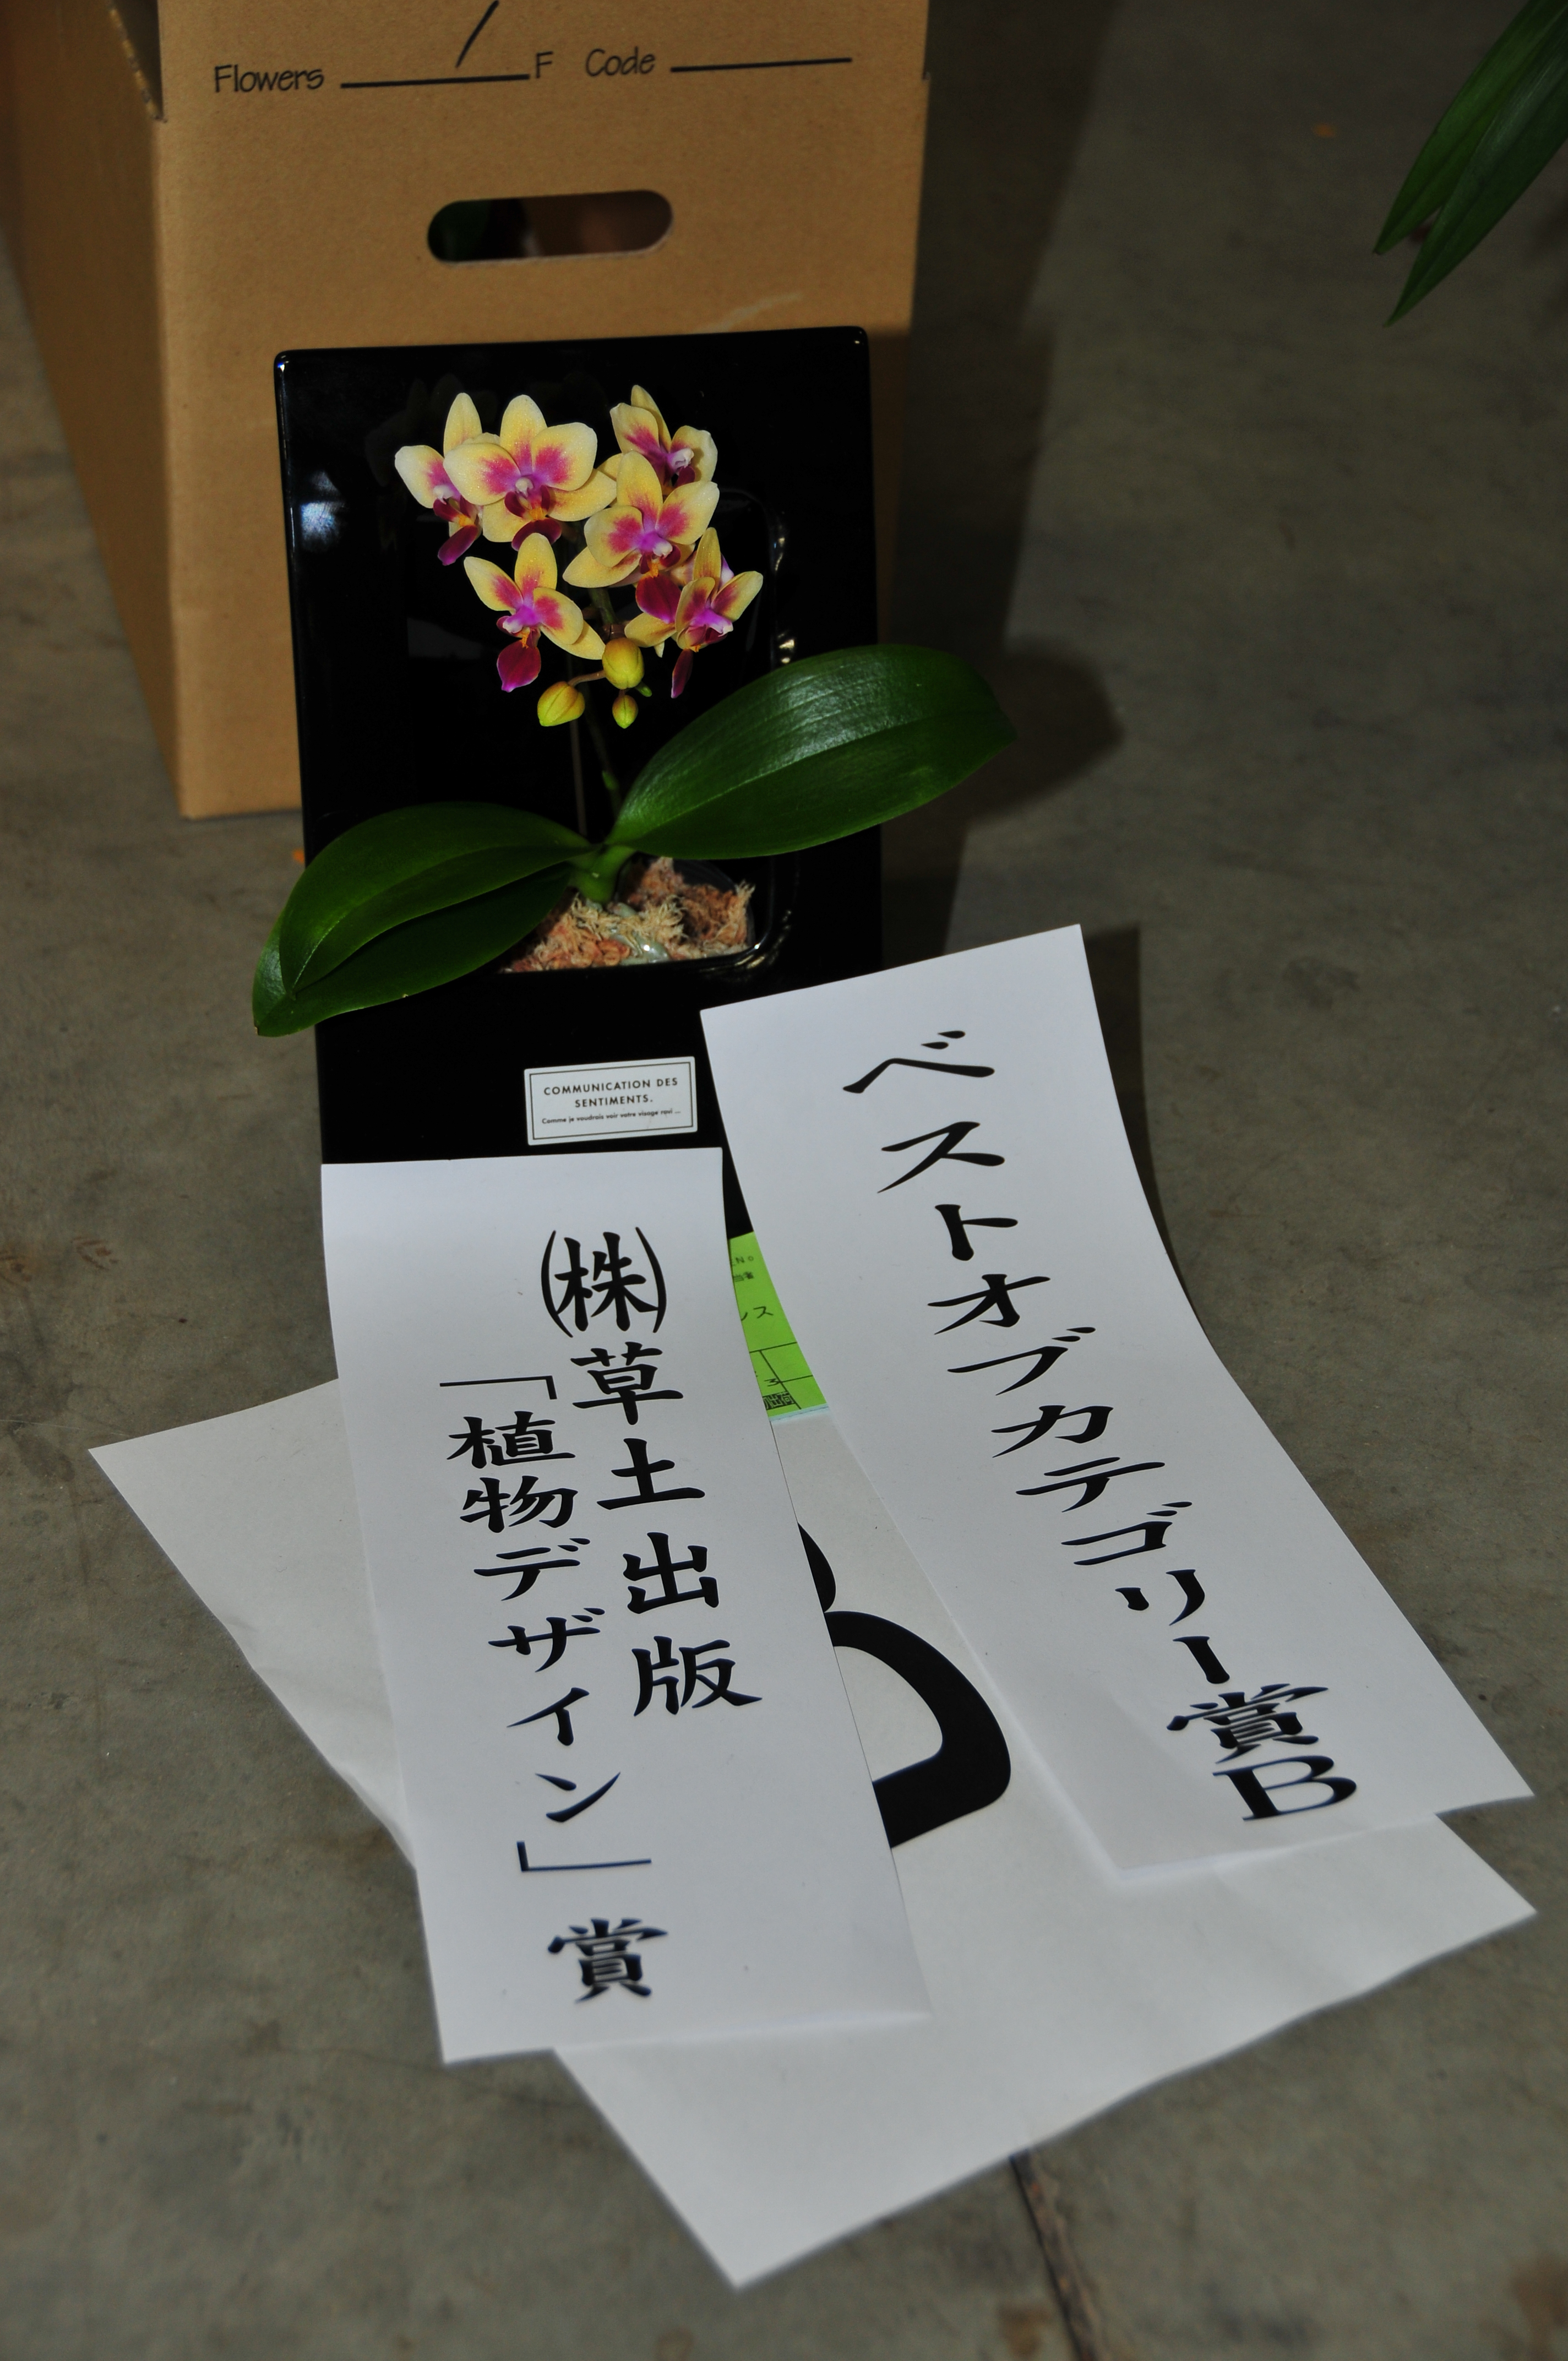 Flowers / F Code
COMMUNICATION DES
SENTIMENTS.
Comme je voudrais voir votre visage ravi ...
ベストオブカテゴリー賞B
㈱草土出版
「植物デザイン」賞
B